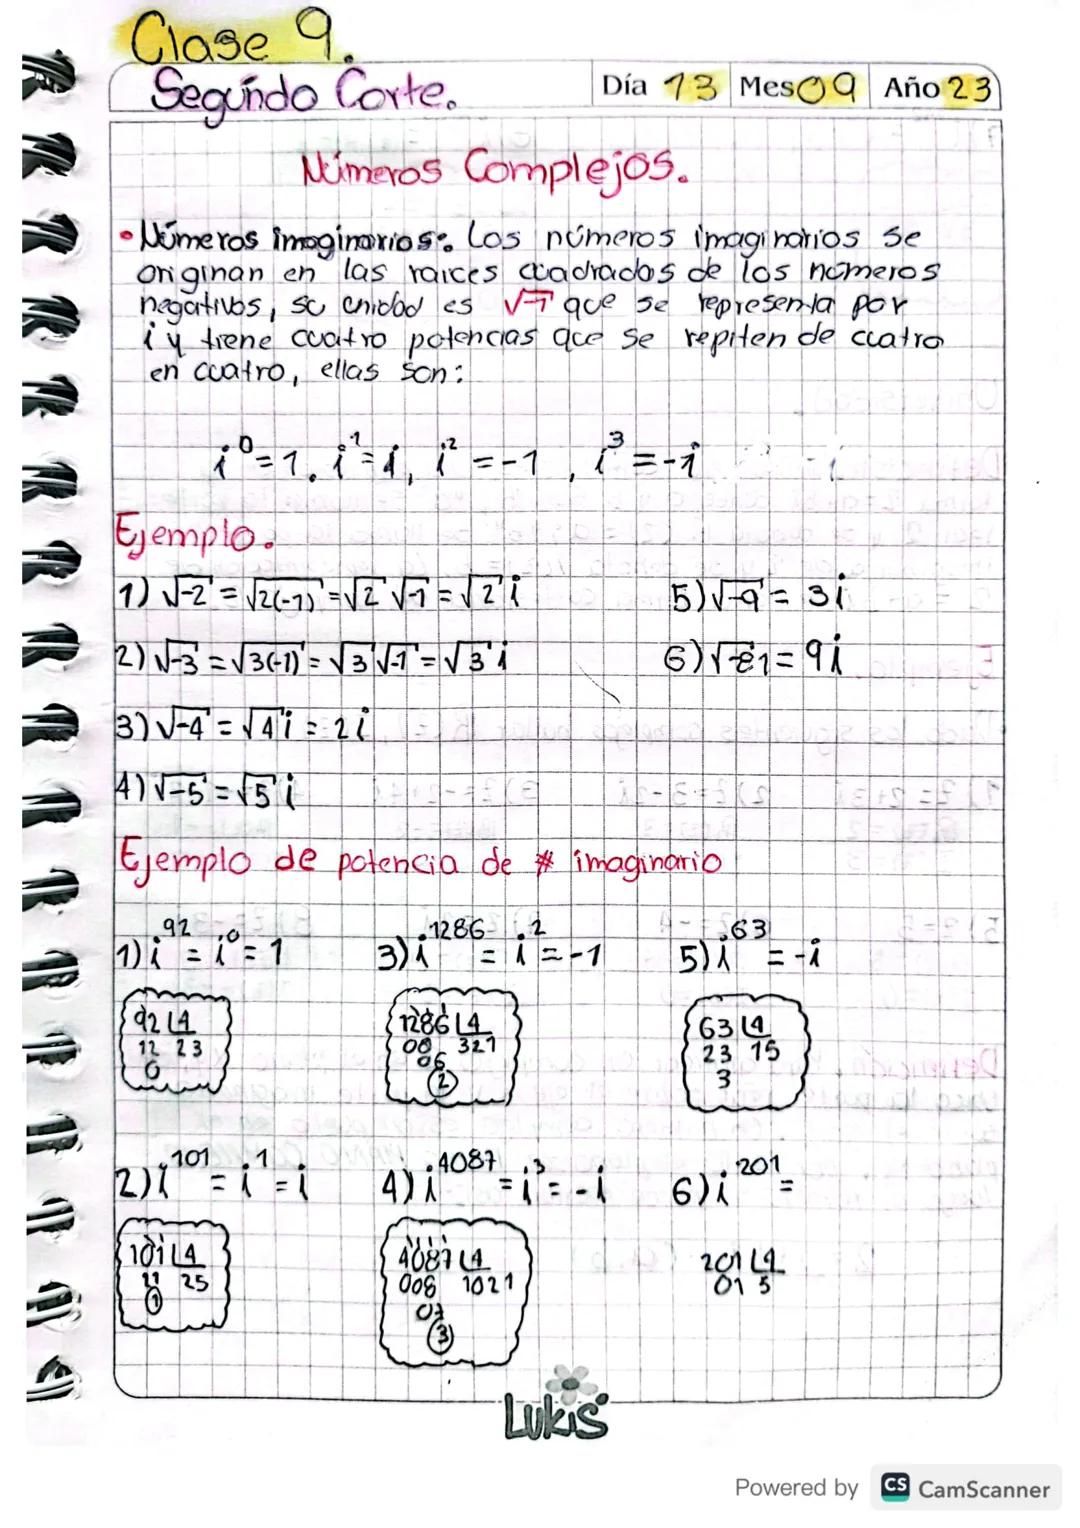 Clase 9.
Segundo Corte.
Día 13 Mes 09 Año 23
Números Complejos.
• Números imaginarios: Los números imaginarios se
originan en las raices cuadradas de los números
negativos, su unidad es √-1 que se representa por
i y tiene cuatro potencias que se repiten de cuatro
en cuatro, ellas son:
i^0 = 1, i^1 = i, i^2 = -1, i^3 = -i
Ejemplo.
1) √-2 = √2(-1) = √2 √-1 = √2 i
5) √-9 = 3i
2) √-3 = √3(-1) = √3 √-1 = √3 i
6) √-81 = 9i
3) √-4 = √4 i = 2i
4) √-5 = √5 i
Ejemplo de potencia de # imaginario
1) i^92 = i^0 = 1
3) i^1286 = i^2 = -1
5) i^63 = -i
92 |4
12 23
0
1286 |4
08 321
06
2
63 |4
23 15
3
2) i^101 = i^1 = i
4) i^4087 = i^3 = -i
6) i^201 =
101 |4
21 25
1
4087 |4
008 1021
07
3
201 |4
01 5
Lukis
Powered by CS CamScanner